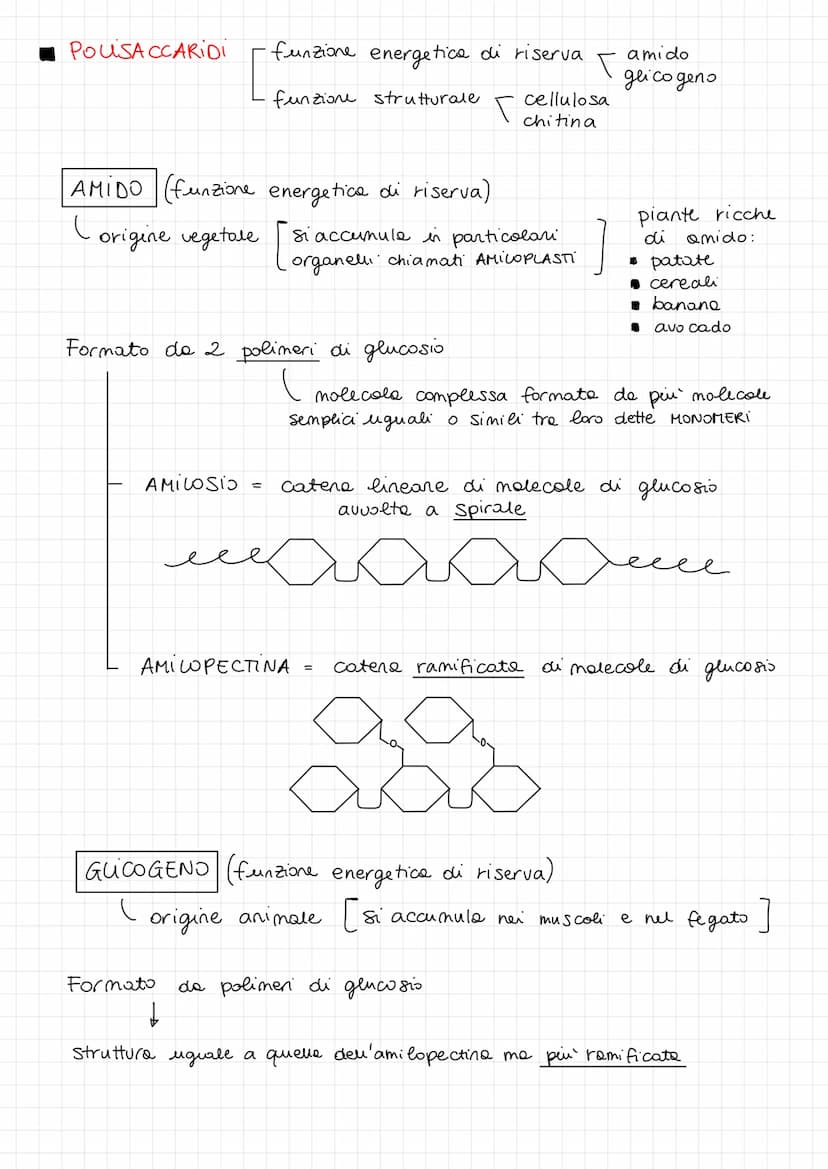 POLISACCARIDI
funzione energetica di riserva
amido
glicogeno
funzione strutturale
cellulosa
chitina
AMIDO (funzione energetica di riserva)
origine vegetale
si accumula in particolari
organelli chiamati AMILOPLASTI
piante ricche
di amido:
patate
cereali
banana
avocado
Formato da 2 polimeri di glucosio
molecola complessa formata da più molecole
semplici uguali o simili tra loro dette MONOMERI
AMILOSIO = catena lineare di molecole di glucosio
avvolta a spirale
AMILOPECTINA = catena ramificata di molecole di glucosio
O O
GLICOGENO (funzione energetica di riserva)
origine animale [si accumula nei muscoli e nel fegato]
Formato da polimeri di glucosio
struttura uguale a quella dell'amilopectina ma più ramificata